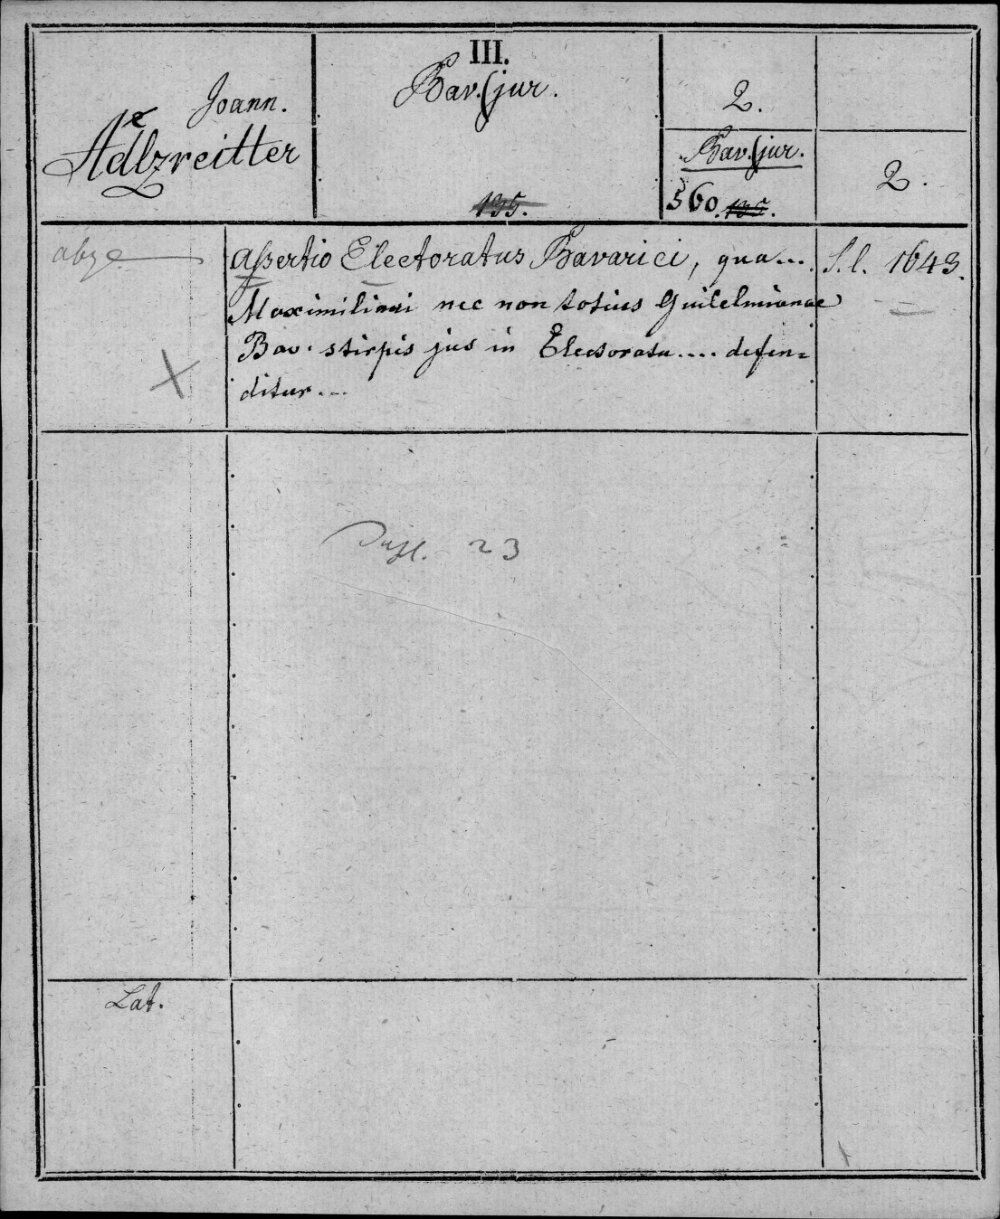 III.
Joann.
Adlzreitter
e
Bav. jur.
135.
2.
Bav. jur.
560. 135.
2.
abge
Assertio Electoratus Bavarici, qua...
S. l. 1643.
Maximiliani nec non totius Guilelmianae
Bav. stirpis jus in Electoratu.... defen=
ditur...
X
23
Lat.